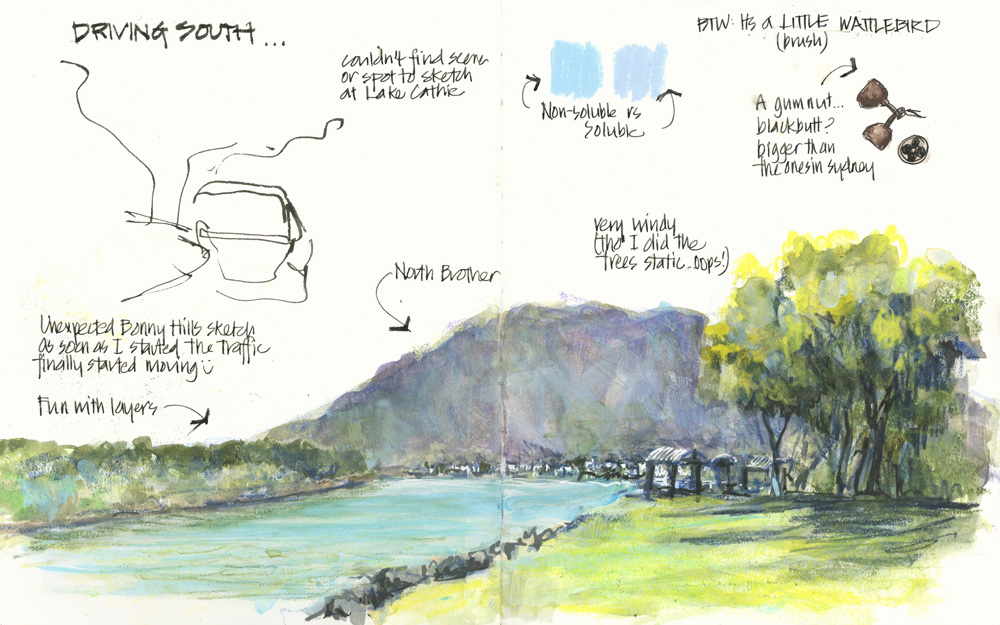 DRIVING SOUTH ...
couldn't find scene
or spot to sketch
at Lake Cathie
Unexpected Bonny Hills sketch
as soon as I started the traffic
finally started moving
Fun with layers
North Brother
Non-soluble vs
soluble
BTW: It's a LITTLE WATTLEBIRD
(brush)
A gumnut...
blackbutt?
bigger than
the ones in sydney
very windy
(tho I did the
trees static..oops!)